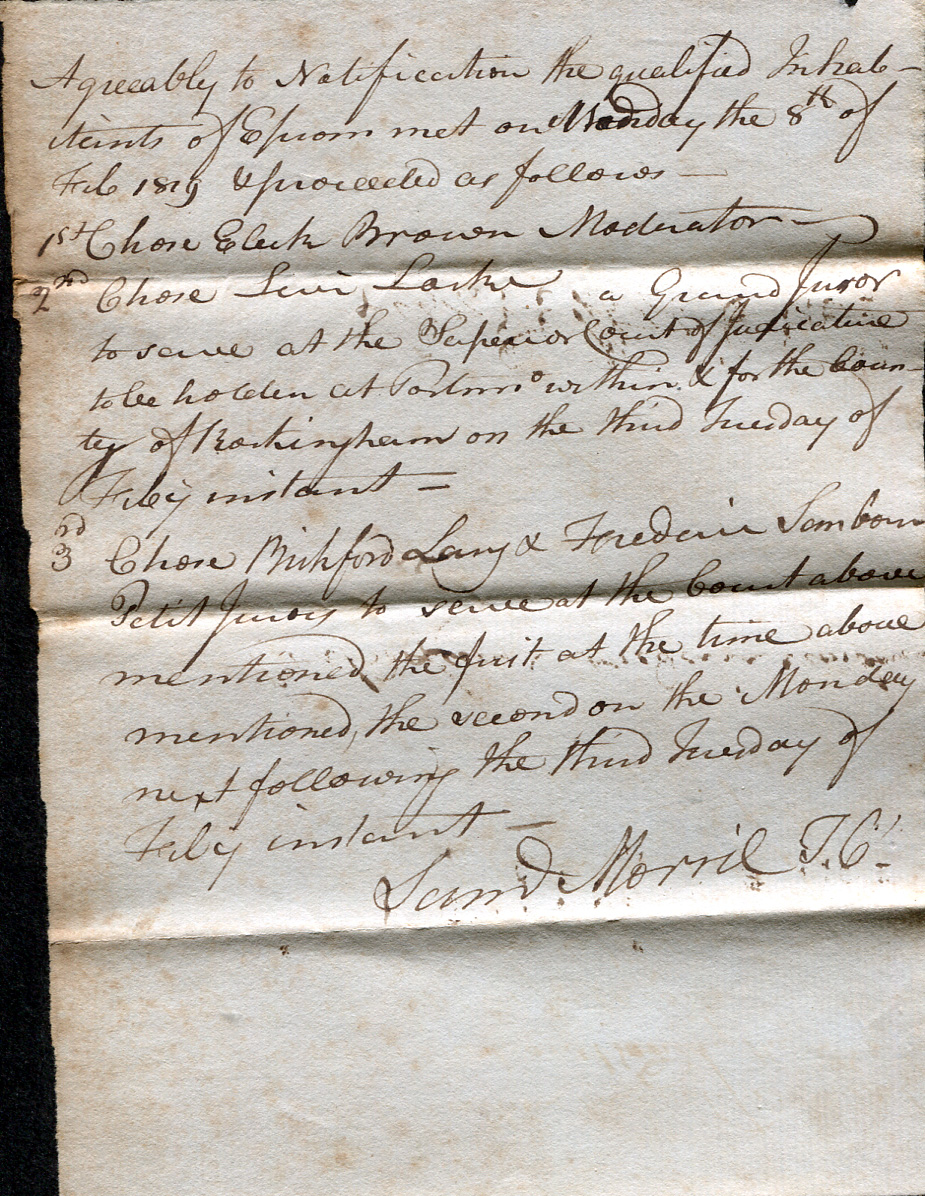 Agreeably to Notification the qualified Inhab-
itants of Epsom met on Monday the 8th of
Feb 1819 & proceeded as follows —
1st Chose Elick Brown Moderator —
2nd Chose Levi Locke a Grand Juror
to serve at the Superior Court of Judicature
to be holden at Portsmo within & for the Coun-
ty of Rockingham on the third Tuesday of
Feby instant —
3rd Chose Bickford Lang & Frederic Sanborn
Petit Jurors to serve at the Court above
mentioned the first at the time above
mentioned, the second on the Monday
next following the third Tuesday of
Feby instant —
Samd Morril T.C.